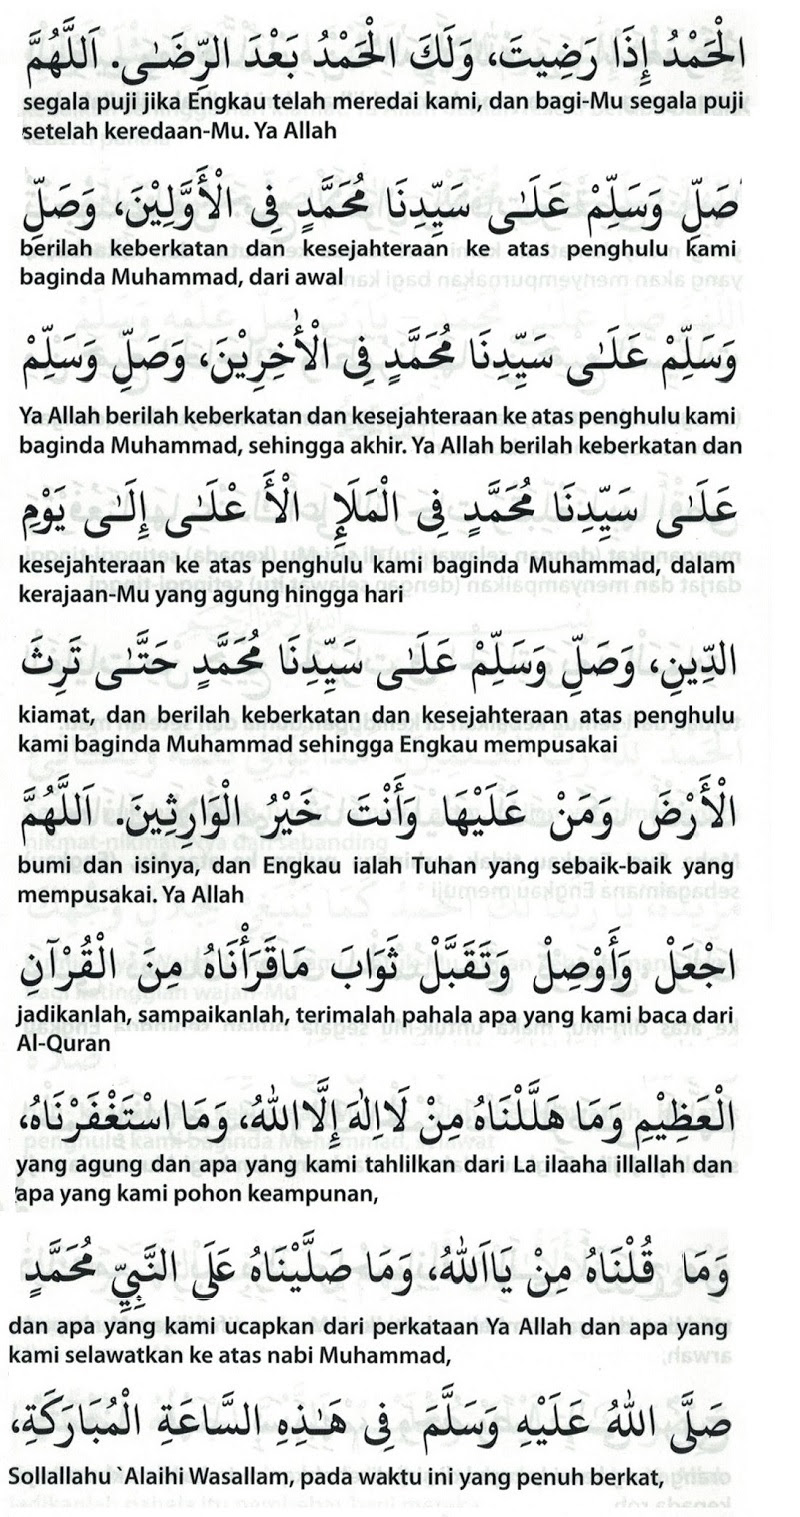 الْحَمْدُ إِذَا رَضِيتَ، وَلَكَ الْحَمْدُ بَعْدَ الرِّضَىٰ. اَللَّهُمَّ
segala puji jika Engkau telah meredai kami, dan bagi-Mu segala puji
setelah keredaan-Mu. Ya Allah
صَلِّ وَسَلِّمْ عَلَىٰ سَيِّدِنَا مُحَمَّدٍ فِى الْأَوَّلِيْنَ، وَصَلِّ
berilah keberkatan dan kesejahteraan ke atas penghulu kami
baginda Muhammad, dari awal
وَسَلِّمْ عَلَىٰ سَيِّدِنَا مُحَمَّدٍ فِى الْأٰخِرِيْنَ، وَصَلِّ وَسَلِّمْ
Ya Allah berilah keberkatan dan kesejahteraan ke atas penghulu kami
baginda Muhammad, sehingga akhir. Ya Allah berilah keberkatan dan
عَلَىٰ سَيِّدِنَا مُحَمَّدٍ فِى الْمَلَإِ الْأَعْلَىٰ إِلَىٰ يَوْمِ
kesejahteraan ke atas penghulu kami baginda Muhammad, dalam
kerajaan-Mu yang agung hingga hari
الدِّينِ، وَصَلِّ وَسَلِّمْ عَلَىٰ سَيِّدِنَا مُحَمَّدٍ حَتَّىٰ تَرِثَ
kiamat, dan berilah keberkatan dan kesejahteraan atas penghulu
kami baginda Muhammad sehingga Engkau mempusakai
الْأَرْضَ وَمَنْ عَلَيْهَا وَأَنْتَ خَيْرُ الْوَارِثِينَ. اَللَّهُمَّ
bumi dan isinya, dan Engkau ialah Tuhan yang sebaik-baik yang
mempusakai. Ya Allah
اجْعَلْ وَأَوْصِلْ وَتَقَبَّلْ ثَوَابَ مَاقَرَأْنَاهُ مِنَ الْقُرْآنِ
jadikanlah, sampaikanlah, terimalah pahala apa yang kami baca dari
Al-Quran
الْعَظِيْمِ وَمَا هَلَّلْنَاهُ مِنْ لَا الٰهَ إِلَّا اللهُ، وَمَا اسْتَغْفَرْنَاهُ،
yang agung dan apa yang kami tahlilkan dari La ilaaha illallah dan
apa yang kami pohon keampunan,
وَمَا قُلْنَاهُ مِنْ يَااَللهُ، وَمَا صَلَّيْنَاهُ عَلَى النَّبِيِّ مُحَمَّدٍ
dan apa yang kami ucapkan dari perkataan Ya Allah dan apa yang
kami selawatkan ke atas nabi Muhammad,
صَلَّى اللهُ عَلَيْهِ وَسَلَّمَ فِى هَـٰذِهِ السَّاعَةِ الْمُبَارَكَةِ،
Sollallahu `Alaihi Wasallam, pada waktu ini yang penuh berkat,